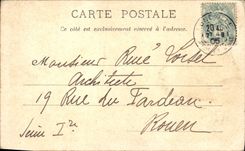 CARTE POSTALE
Ce côté est exclusivement réservé à l'adresse.
Monsieur René Loisel
Architecte
19 Rue du Fardeau
Rouen
Seine Inre